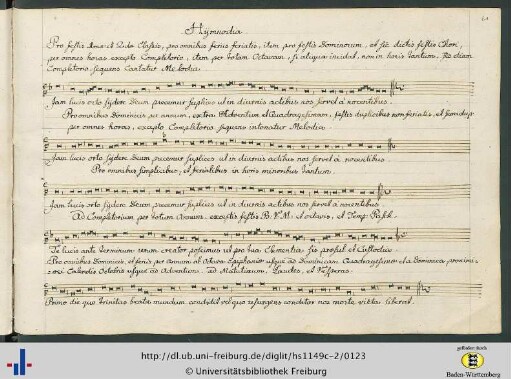 Hymnodia
Pro festis Imæ et 2dæ Classis, pro omnibus feriis feriatis, item pro festis Dominorum, et sic dictis festis Chori,
per omnes horas excepto Completorio, item per totam Octavam, si aliqua incidat, non in horis tantum, sed etiam
Completorio, sequens Cantatur Melodia.
Jam lucis orto sydere Deum precemur suplices ut in diurnis actibus nos servet a nocentibus.
Pro omnibus Dominicis per annum, extra Adventum et Quadragesimam, festis duplicibus non feriatis, et
per omnes horas, excepto Completorio sequens intonatur Melodia.
Jam lucis orto sydere Deum precemur suplices ut in diurnis actibus nos servet à nocentibus.
Pro omnibus simplicibus, et ferialibus in horis minoribus tantum.
Jam lucis orto sydere Deum precemur suplices ut in diurnis actibus nos servet à nocentibus.
Ad Completorium per totum Annum, exceptis festis B. V. M. et octavis, et Temp. Pasch.
Te lucis ante terminum rerum creator poscimus ut pro tua Clementia sis præsul et Custodia.
Pro omnibus Dominicis, et feriis per annum ab Octava Epiphaniæ usque ad Dominicam Quadragesimæ et a Dominica
Calendis Octobris usque ad Adventum, ad Matutinum, Laudes, et Vesperas.
Primo die quo trinitas beata mundum condidit vel quo resurgens conditor nos morte victa liberat.
http://dl.ub.uni-freiburg.de/diglit/hs1149c-2/0123
© Universitätsbibliothek Freiburg
gefördert durch
Baden-Württemberg